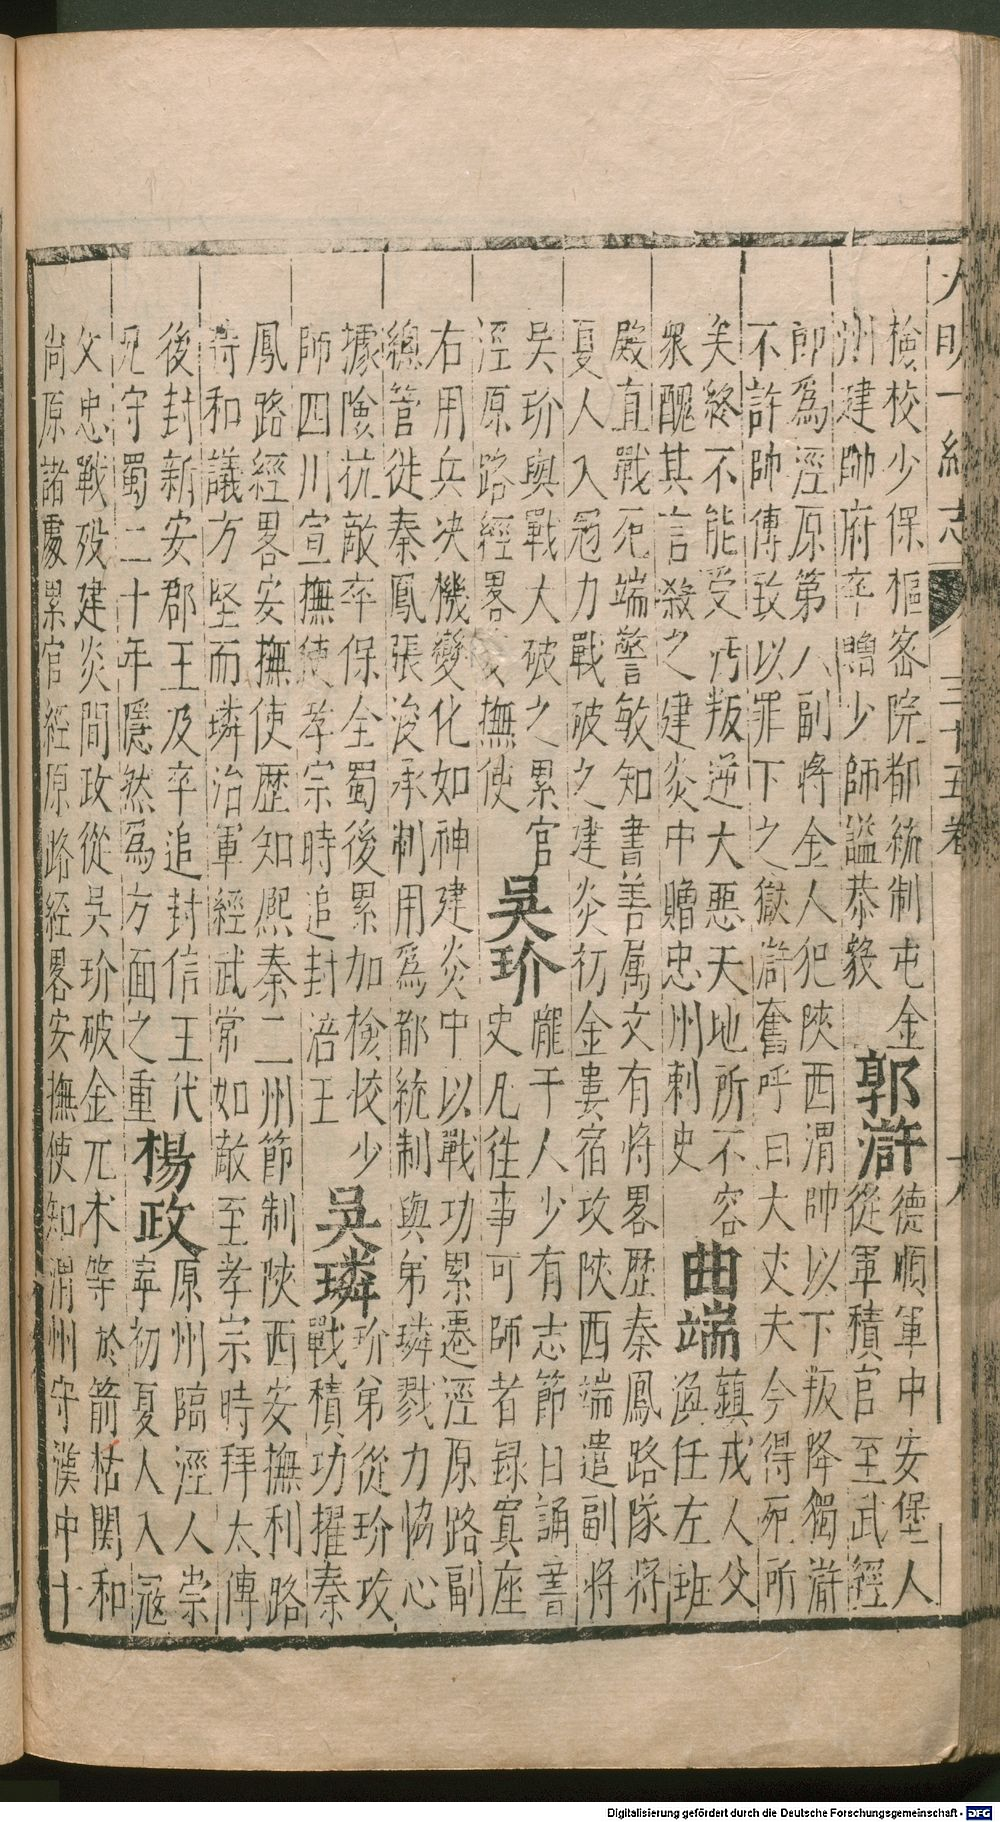 大明一統志 三十五卷
檢校少保樞密院都統制屯金
州建帥府卒贈少師諡恭毅
郭滸
德順軍中安堡人
從軍積官至武經
郎爲涇原第八副將金人犯陝西渭帥以下叛降獨滸
不許帥傳致以罪下之獄滸奮呼曰大丈夫今得死所
矣終不能受汚叛逆大惡天地所不容
衆醜其言殺之建炎中贈忠州刺史
曲端
鎮戎人父
渙任左班
殿直戰死端警敏知書善属文有將畧歷秦鳳路隊將
夏人入冦力戰破之建炎初金婁宿攻陝西端遣副將
吳玠與戰大破之累官
涇原路經畧安撫使
吳玠
隴干人少有志節日誦書
史凡徃事可師者録寘座
右用兵决機變化如神建炎中以戰功累遷涇原路副
總管徙秦鳳張浚承制用爲都統制與弟璘戮力恊心
據險抗敵卒保全蜀後累加檢校少
師四川宣撫使孝宗時追封涪王
吳璘
玠弟從玠攻
戰積功擢秦
鳳路經畧安撫使歷知熈秦二州節制陝西安撫利路
待和議方堅而璘治軍經武常如敵至孝宗時拜太傅
後封新安郡王及卒追封信王代
兄守蜀二十年隱然爲方面之重
楊政
原州臨涇人崇
寧初夏人入冦
父忠戰殁建炎間政從吳玠破金兀术等於箭栝關和
尚原諸處累官經原路經畧安撫使知渭州守漢中十
Digitalisierung gefördert durch die Deutsche Forschungsgemeinschaft - DFG